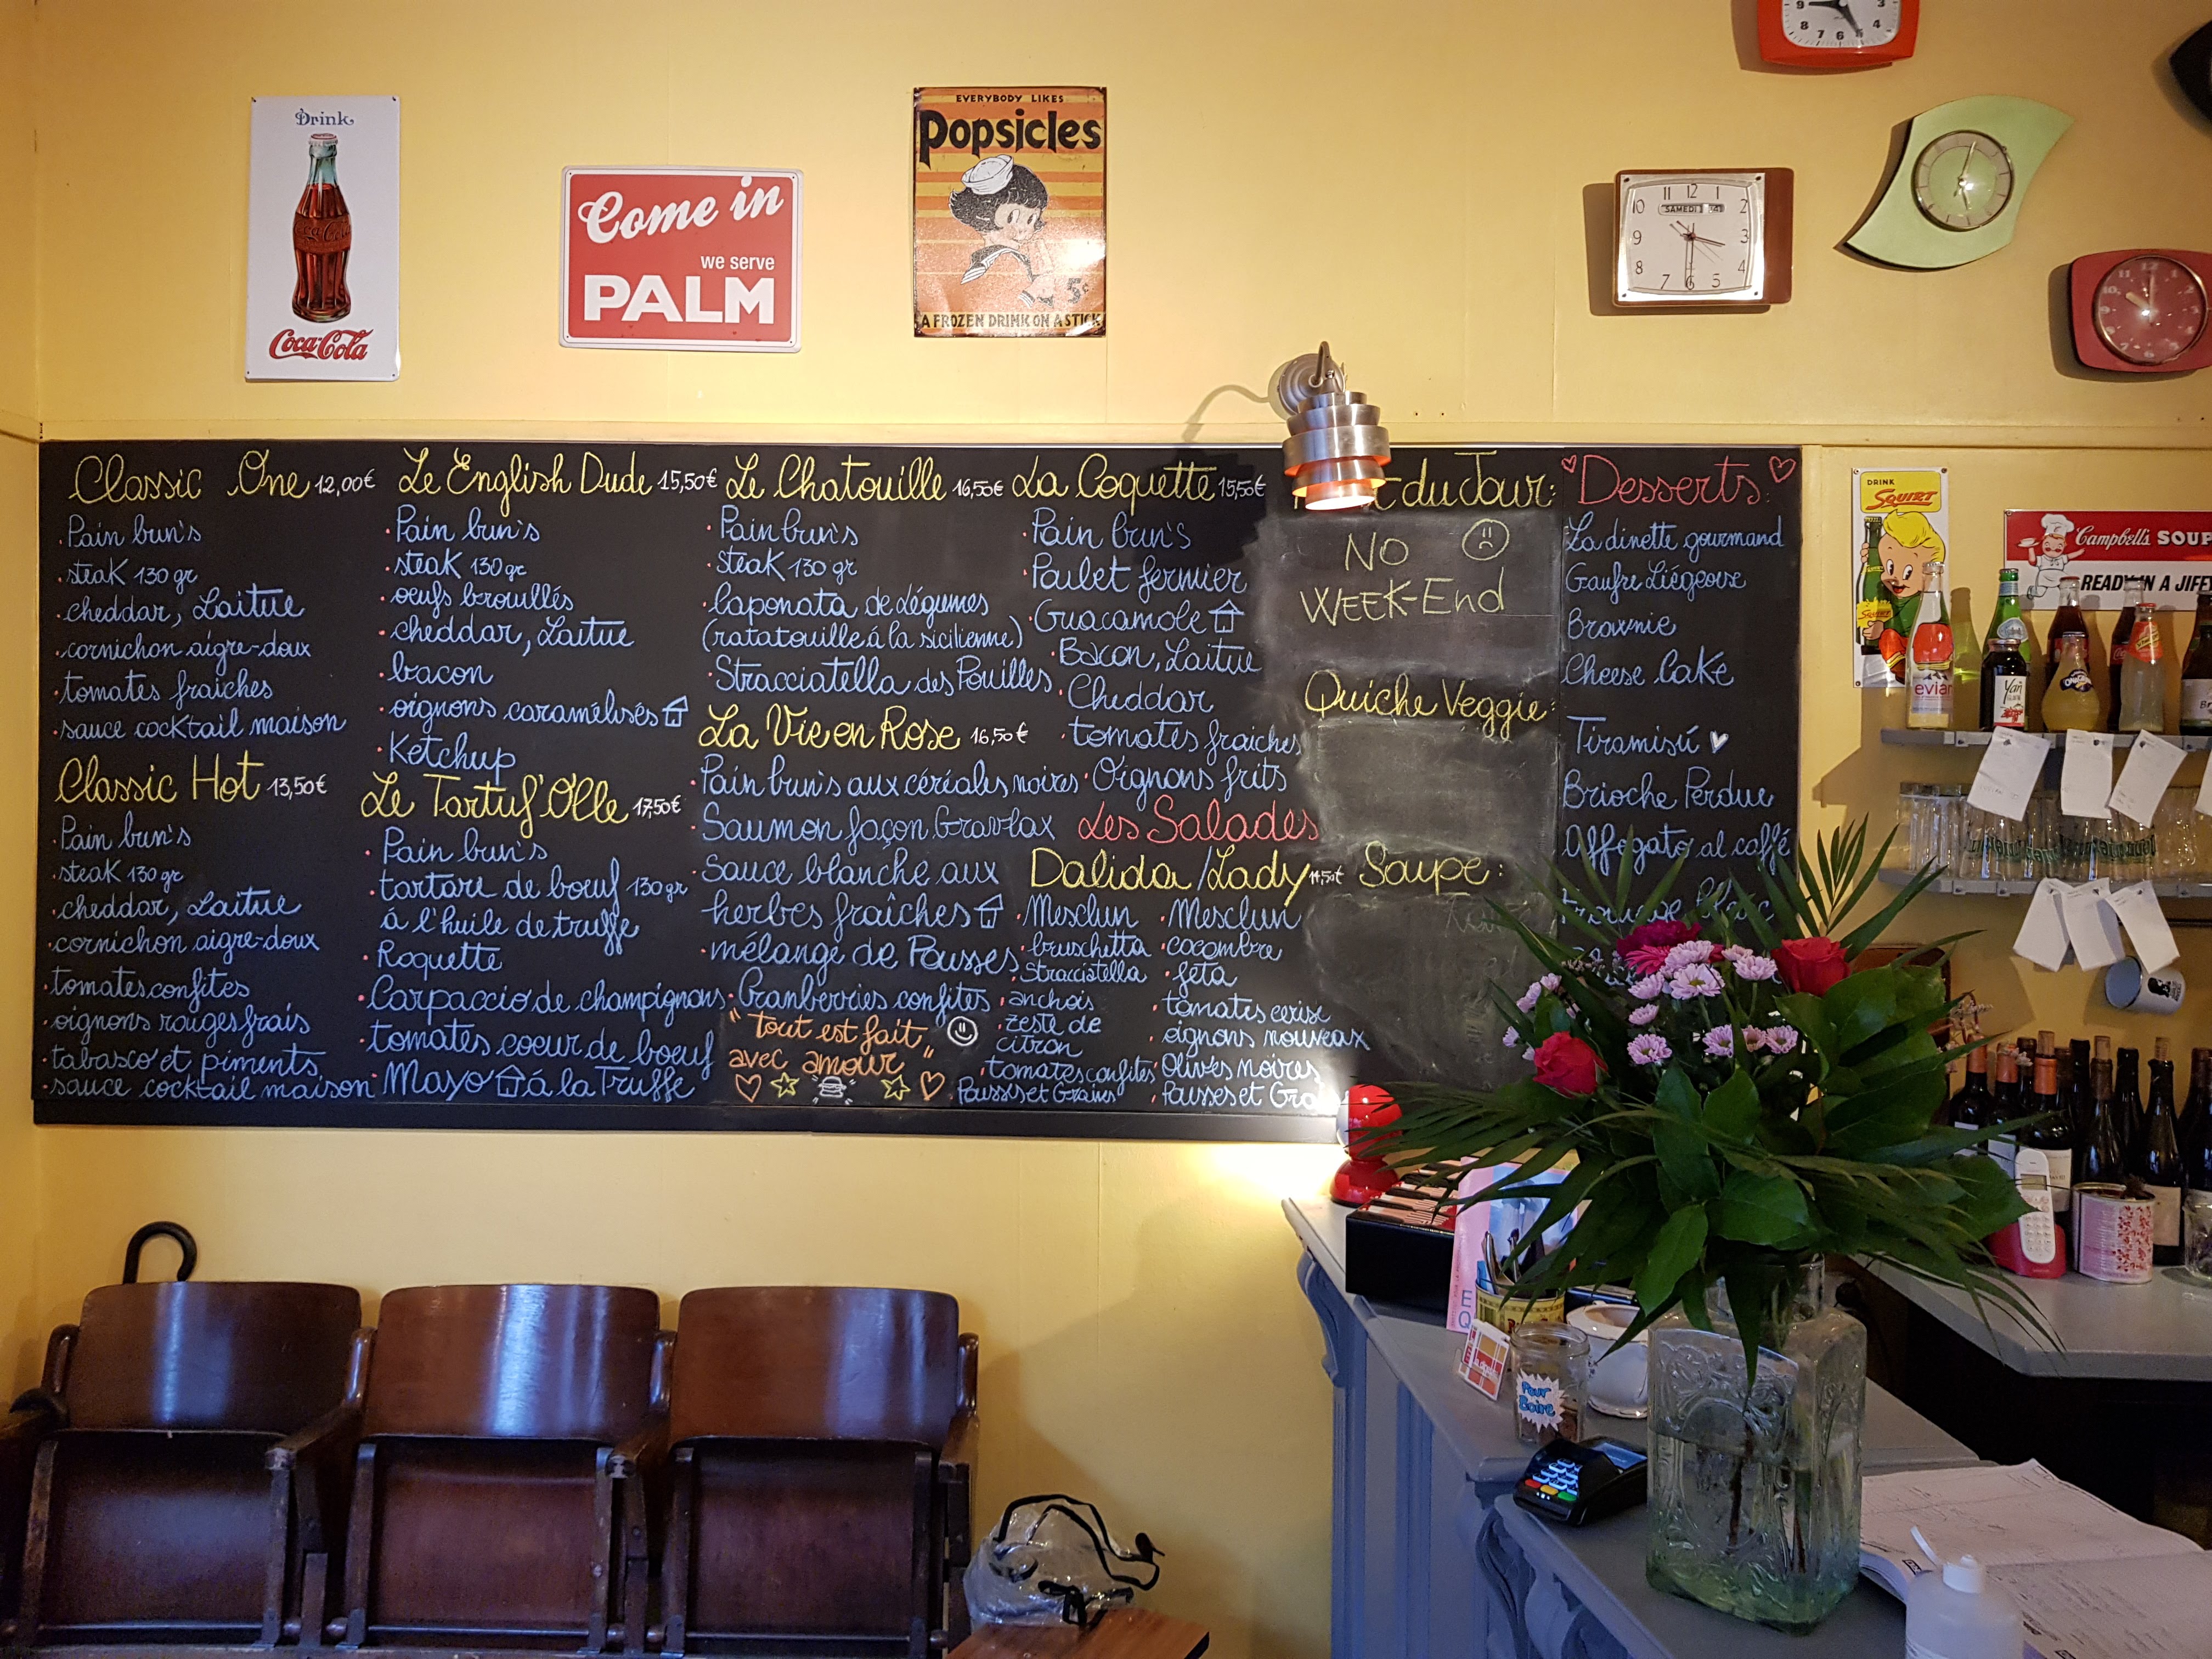 Drink
Coca-Cola
Coca-Cola
Come in
we serve
PALM
EVERYBODY LIKES
Popsicles
5¢
A FROZEN DRINK ON A STICK
9 3
8 4
7 6 5
11 12 1
10 SAMEDI 2
9 3
8 4
7 6 5
Classic One 12,00€
Pain bun's
steak 130 gr
cheddar, Laitue
cornichon aigre-doux
tomates fraiches
sauce cocktail maison
Classic Hot 13,50€
Pain bun's
steak 130 gr
cheddar, Laitue
cornichon aigre-doux
tomates confites
oignons rouges frais
tabasco et piments
sauce cocktail maison
Le English Dude 15,50€
Pain bun's
steak 130 gr
oeufs brouillés
cheddar, Laitue
bacon
oignons caramélisés
Ketchup
Le Tartuf'Olle 17,50€
Pain bun's
tartare de boeuf 130 gr
à l'huile de truffe
Roquette
Carpaccio de champignons
tomates coeur de boeuf
Mayo à la Truffe
Le Chatouille 16,50€
Pain bun's
steak 130 gr
Caponata de Légumes
(ratatouille à la sicilienne)
Stracciatella des Pouilles
La Vie en Rose 16,50€
Pain bun's aux céréales noires
Saumon façon Gravlax
Sauce blanche aux
herbes fraîches
mélange de Pousses
Cranberries confites
"tout est fait
avec amour"
La Coquette 15,50€
Pain bun's
Poulet fermier
Guacamole
Bacon, Laitue
Cheddar
tomates fraiches
Oignons frits
Les Salades
Dalida / Lady
Mesclun
bruschetta
Stracciatella
anchois
zeste de
citron
tomates confites
Pousses et Graines
Mesclun
cocombre
feta
tomates cerise
oignons nouveaux
Olives noires
Pousses et
du Jour:
NO
WEEK-End
Quiche Veggie:
Soupe:
Desserts:
La dinette gourmand
Gaufre Liégeoise
Brownie
Cheese Cake
Tiramisú
Brioche Perdue
Affogato al caffé
DRINK
SQUIRT
Campbell's SOUP
READY IN A JIFF
evian
Yan
Pour
Boire